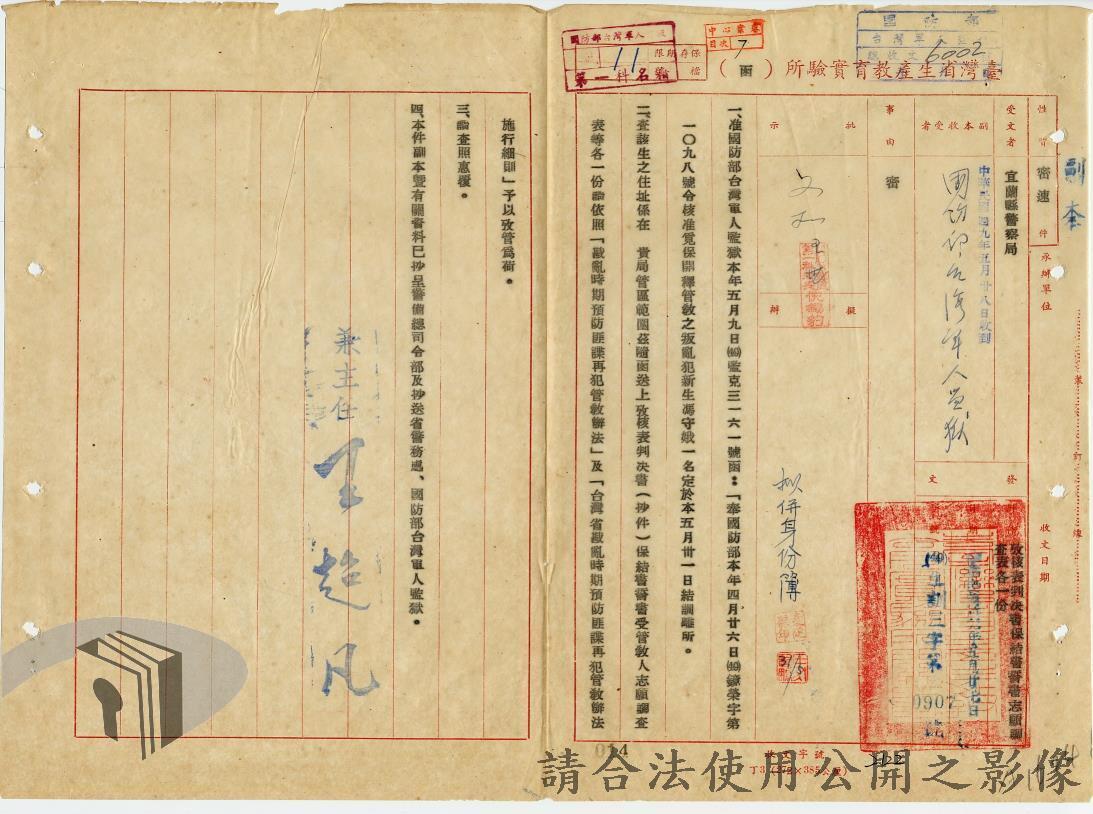 副本
國防部
台灣軍人監獄
6002
中心檔案
目次 7
國防部台灣軍人監獄
保存期限
11
第一科
檔號
臺灣省生產教育實驗所（函）
性質
密速件
承辦單位
裝
訂
線
收文日期
受文者
宜蘭縣警察局
副本收受者
中華民國四九年五月廿八日收到
國防部台灣軍人監獄
發
文
攷核表判決書保結書誓書志願調
查表各一份
0907
事由
密
批
示
擬
辦
拟併身份簿
31/5
一、准國防部台灣軍人監獄本年五月九日(49)監克三一六一號函：「奉國防部本年四月廿六日(49)鐐榮字第
一〇九八號令核准覓保開釋管敎之叛亂犯新生馮守娥一名定於本五月卅一日結訓離所。
二、查該生之住址係在　貴局管區範圍茲隨函送上攷核表判決書（抄件）保結書誓書受管敎人志願調查
表等各一份請依照「戡亂時期預防匪諜再犯管敎辦法」及「台灣省戡亂時期預防匪諜再犯管敎辦法
施行細則」予以攷管爲荷。
三、請查照惠覆。
四、本件副本暨有關書料已抄呈警備總司令部及抄送省警務處、國防部台灣軍人監獄。
兼主任
王超凡
014
收文字號
丁3（272×385公厘）
請合法使用公開之影像